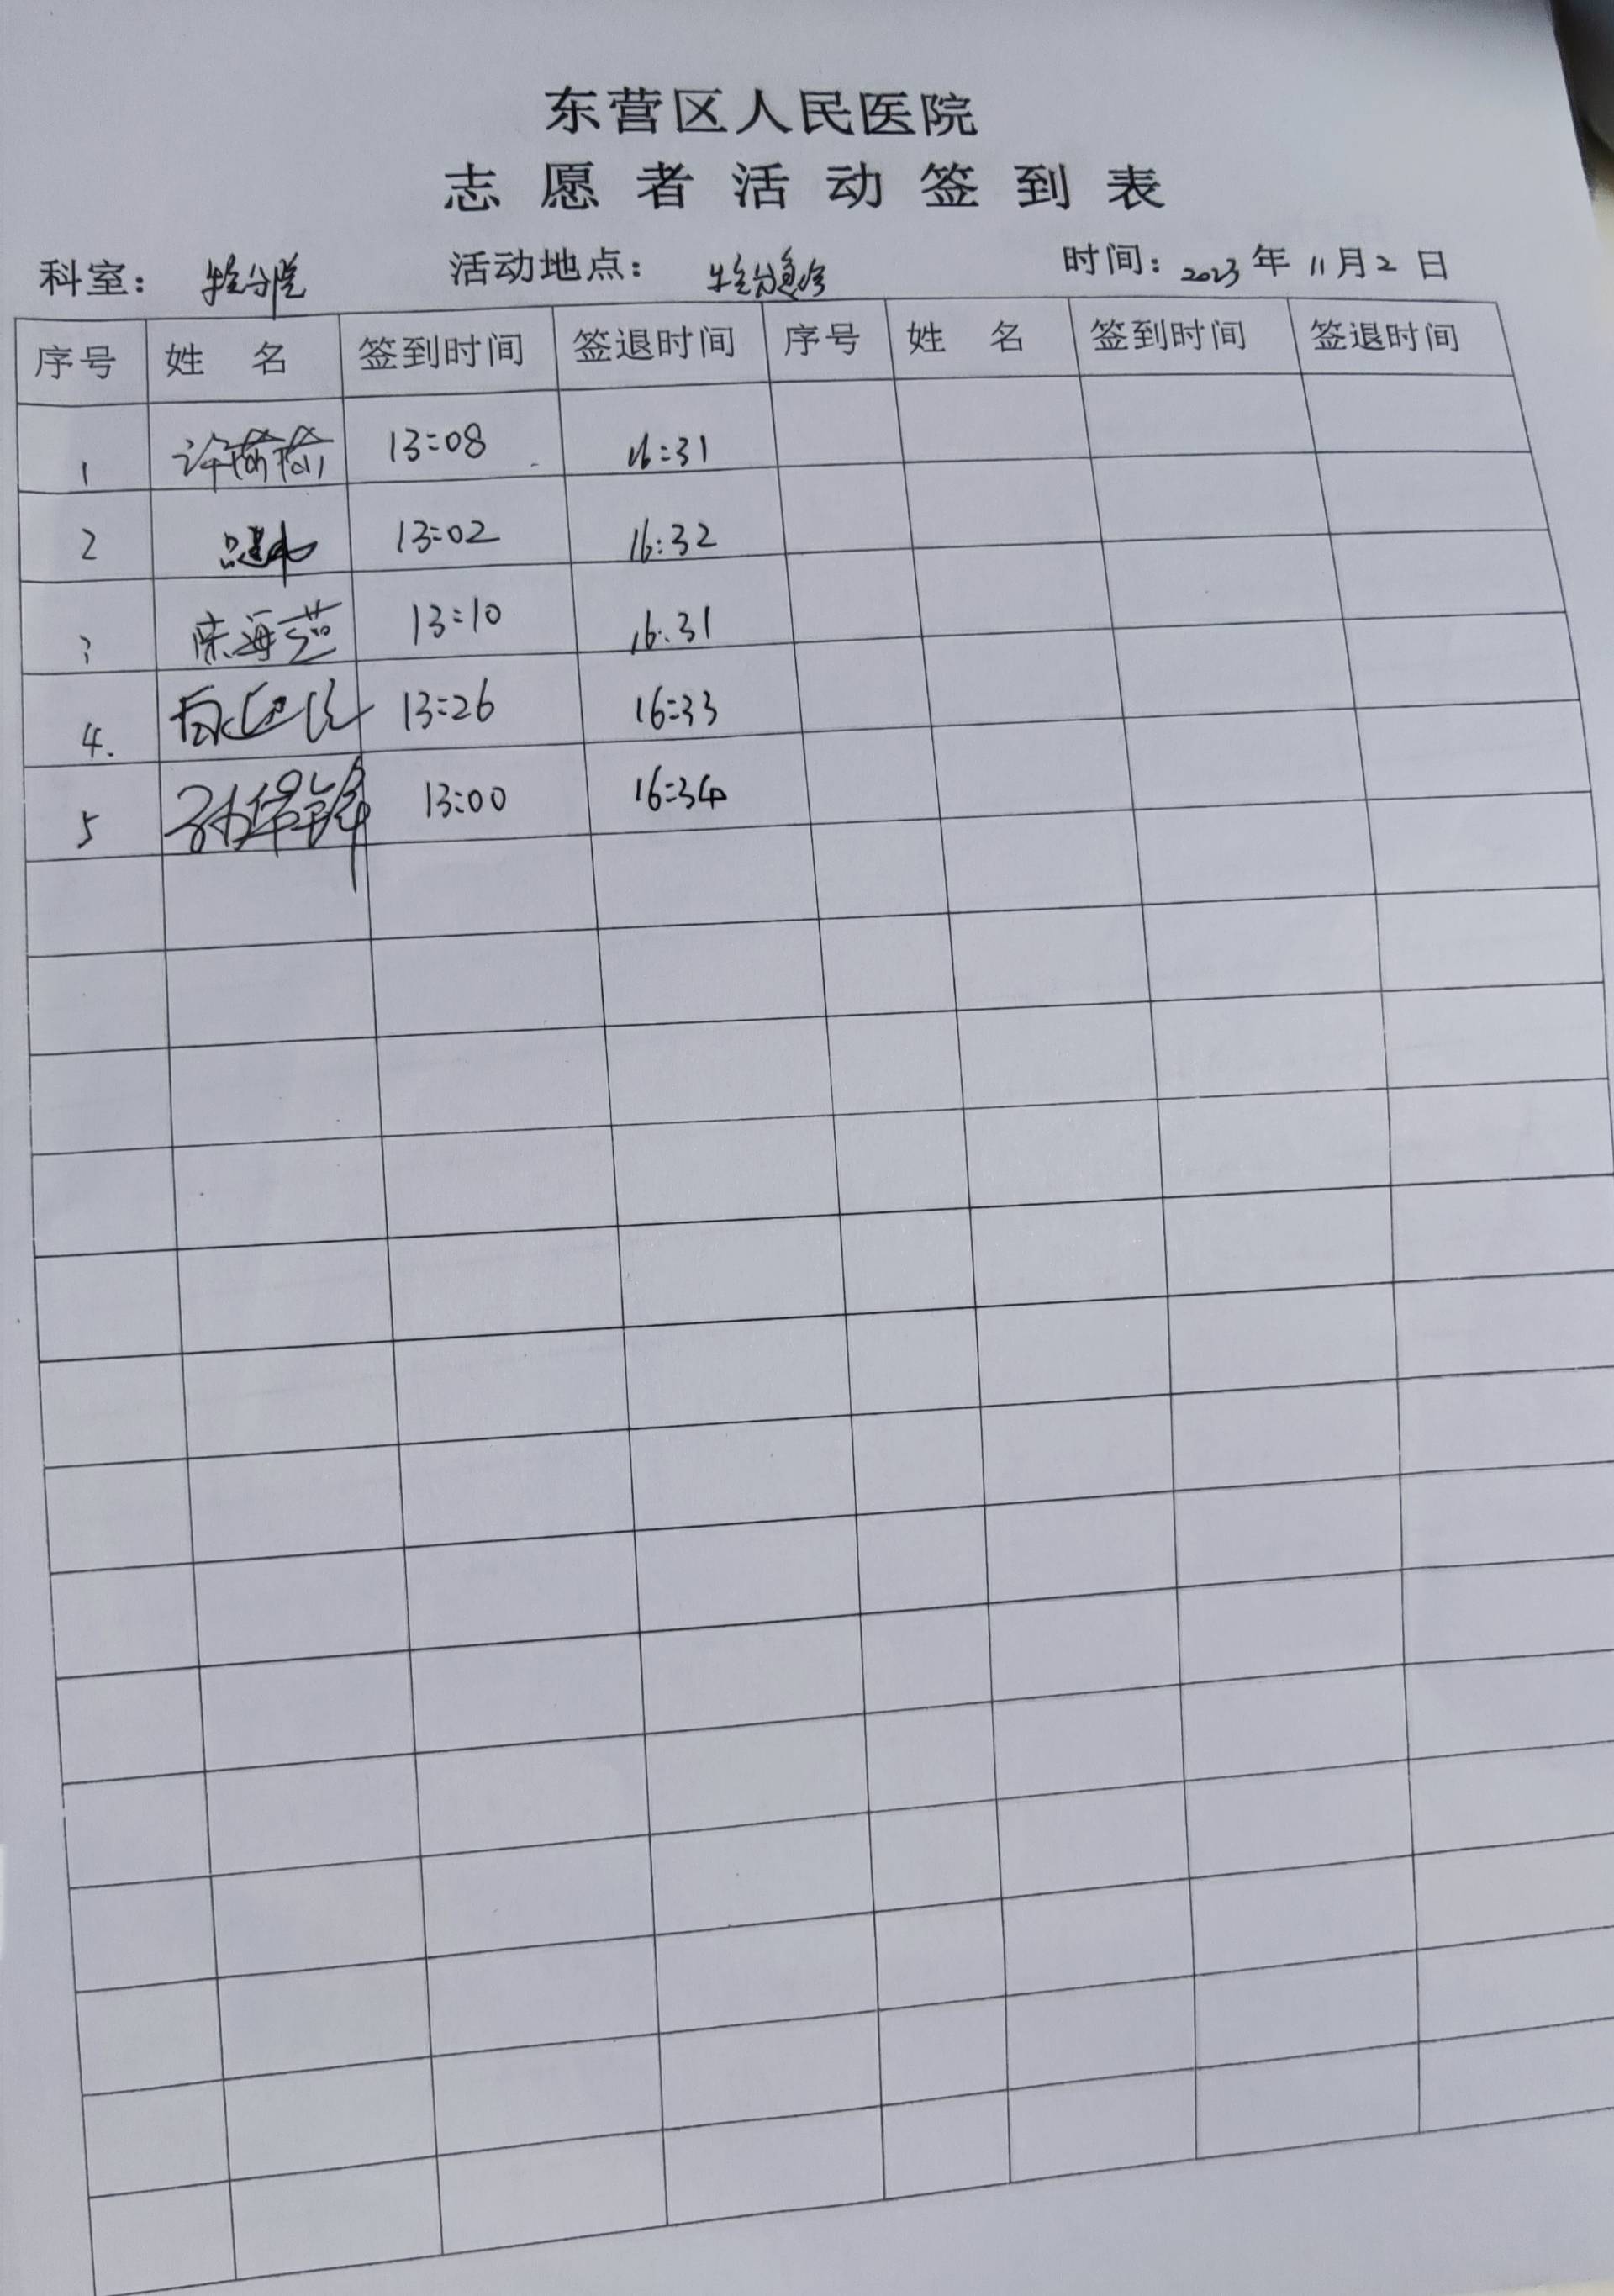 东营区人民医院
志愿者活动签到表
科室： 牛庄分院 活动地点： 牛庄分急诊 时间：2023年11月2日
序号 姓名 签到时间 签退时间 序号 姓名 签到时间 签退时间
1 许荷荷 13:08 16:31
2 13:02 16:32
3 宋海燕 13:10 16:31
4. 13:26 16:33
5 孙保锋 13:00 16:34